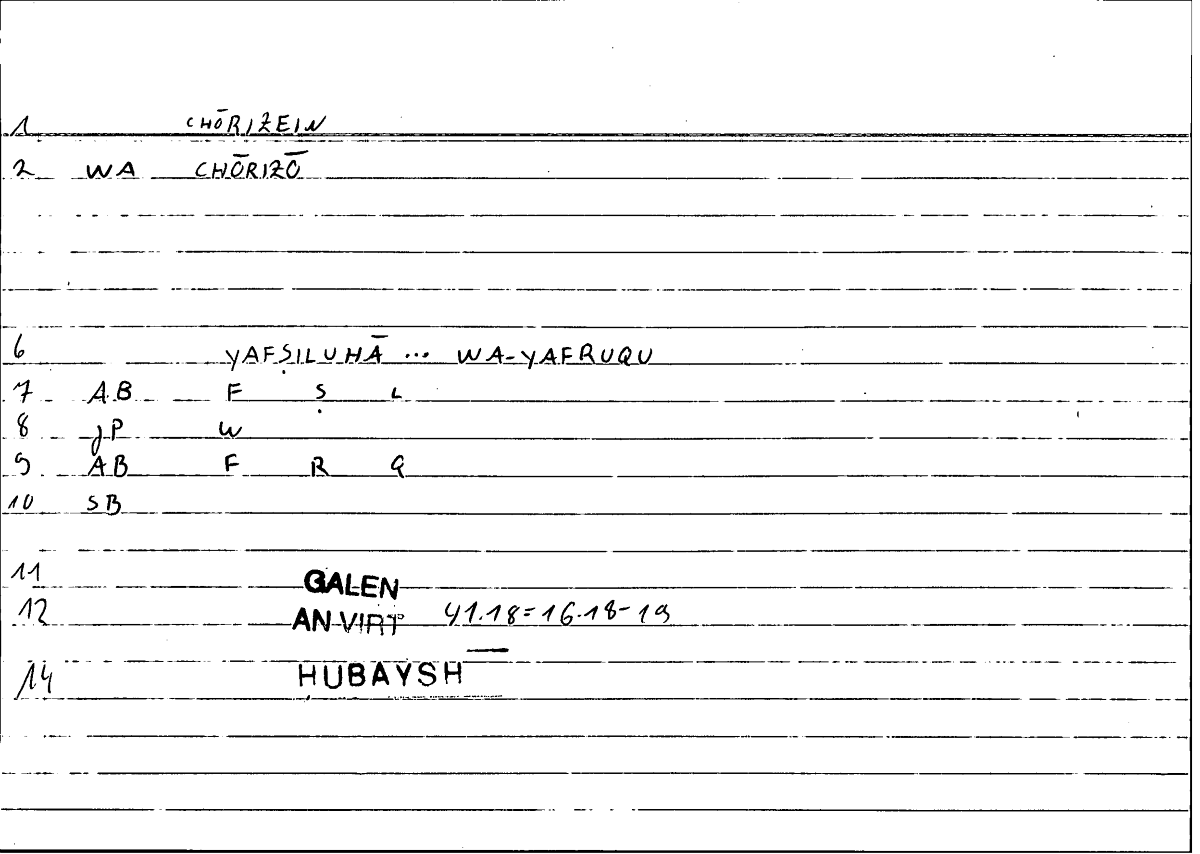 1 CHŌRIZEIN
2 WA CHŌRIZŌ
6 YAFṢILUHĀ ... WA-YAFRUQU
7 AB F Ṣ L
8 JP W
9 AB F R Q
10 SB
11 GALEN
12 AN VIRT 41.18=16.18-19
14 ḤUBAYSH